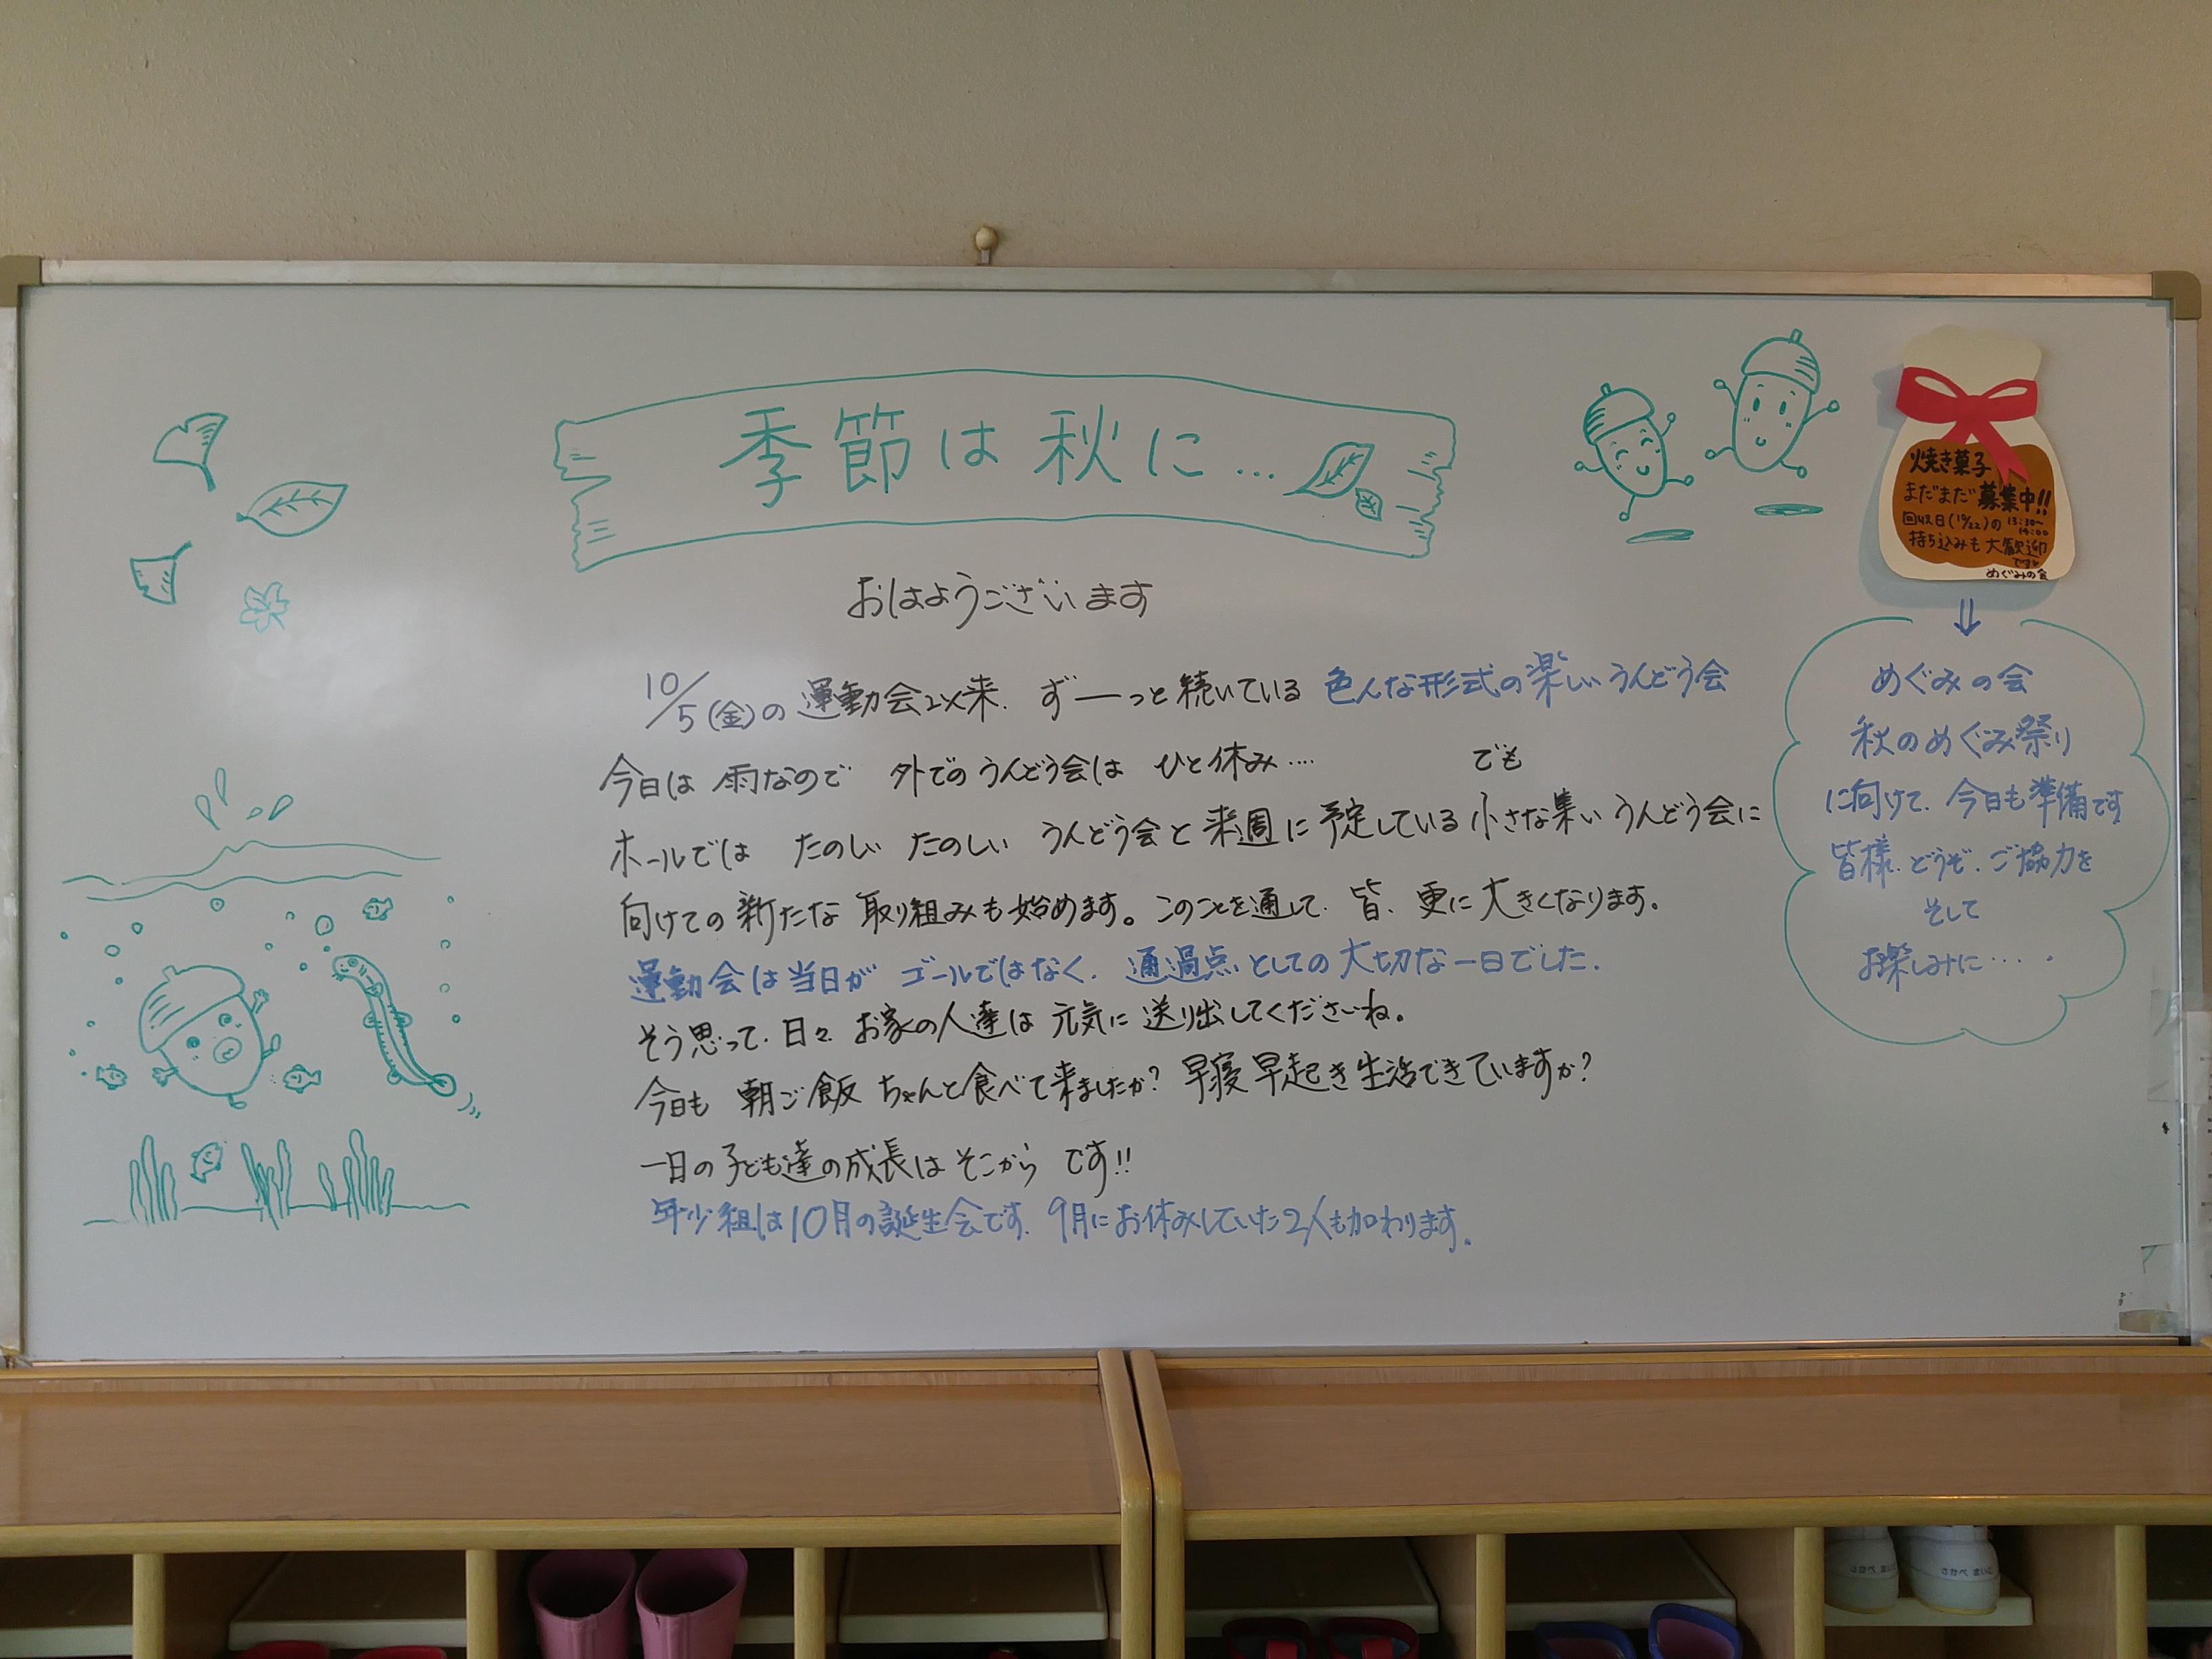 季節は秋に…
おはようございます
10/5(金)の運動会以来、ずーーっと続いている色んな形式の楽しいうんどう会
今日は雨なので 外でのうんどう会は ひと休み‥‥ でも
ホールでは たのしい たのしい うんどう会と来週に予定している小さな集い うんどう会に
向けての新たな取り組みも始めます。このことを通して、皆、更に大きくなります。
運動会は当日が ゴールではなく、通過点としての大切な一日でした.
そう思って、日々、お家の人達は元気に送り出してくださいね。
今日も 朝ご飯 ちゃんと食べて来ましたか？ 早寝早起き生活できていますか？
一日の子ども達の成長はそこから です!!
年少組は10月の誕生会です。9月にお休みしていた2人も加わります。
焼き菓子
まだまだ募集中!!
回収日(10/22)の 13:30〜
14:00
持ち込みも大歓迎
です♡
めぐみの会
⇓
めぐみの会
秋のめぐみ祭り
に向けて、今日も準備です
皆様、どうぞ、ご協力を
そして
お楽しみに‥‥.
さかべ まいこ